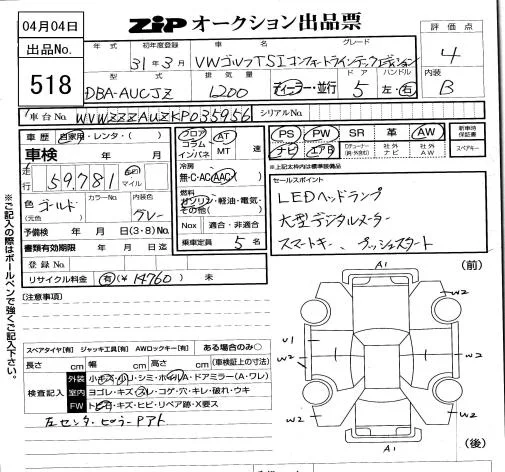 04月04日
ZiP オークション出品票
出品No.
518
年式 初年度登録 車名 グレード
31年3月 VWゴルフTSIコンフォートラインテックエディション
型式 排気量 ドア ハンドル
DBA-AUCJZ 1200 ディーラー・並行 5 左・右
評価点
4
内装
B
車台No. WVWZZZAUZKP035956 シリアルNo.
車歴 自家用・レンタ・( )
車検 年 月
走行 59,781 km マイル
色 (元色) ゴールド 内装色 グレー
予備検 年 月 (3・8)No.
書類有効期限 年 月 日迄
登録No.
リサイクル料金 有(¥14760) 未
フロア コラム インパネ AT MT 速
冷房
無・C・AC・AAC
燃料
ガソリン・軽油・電気・その他( )
Nox 適合・非適合
乗車定員 5名
PS PW SR 革 AW
ナビ エアB Dチューナー 社外ナビ 社外AW
新車時保証書
スペアキー
※上記太枠内は標準装備品
セールスポイント
LEDヘッドランプ
大型デジタルメーター
スマートキー、プッシュスタート
※ご記入の際はボールペンで強くご記入下さい。
[注意事項]
スペアタイヤ[有] ジャッキ工具[有] AWロックキー[有] ある場合のみ○
長さ cm 幅 cm 高さ cm (車検証上の寸法)
検査記入
外装 小キズ・小凹・シミ・ホイルA・ドアミラー(A・ワレ)
室内 ヨゴレ・キズ・スレ・コゲ・穴・キレ・破れ・ウキ
FW トビ石・キズ・ヒビ・リペア跡・X要ス
左センターピラーPアト
(前)
A1
W2
W2
U1
W2
W2
W2
W2
A1
(後)